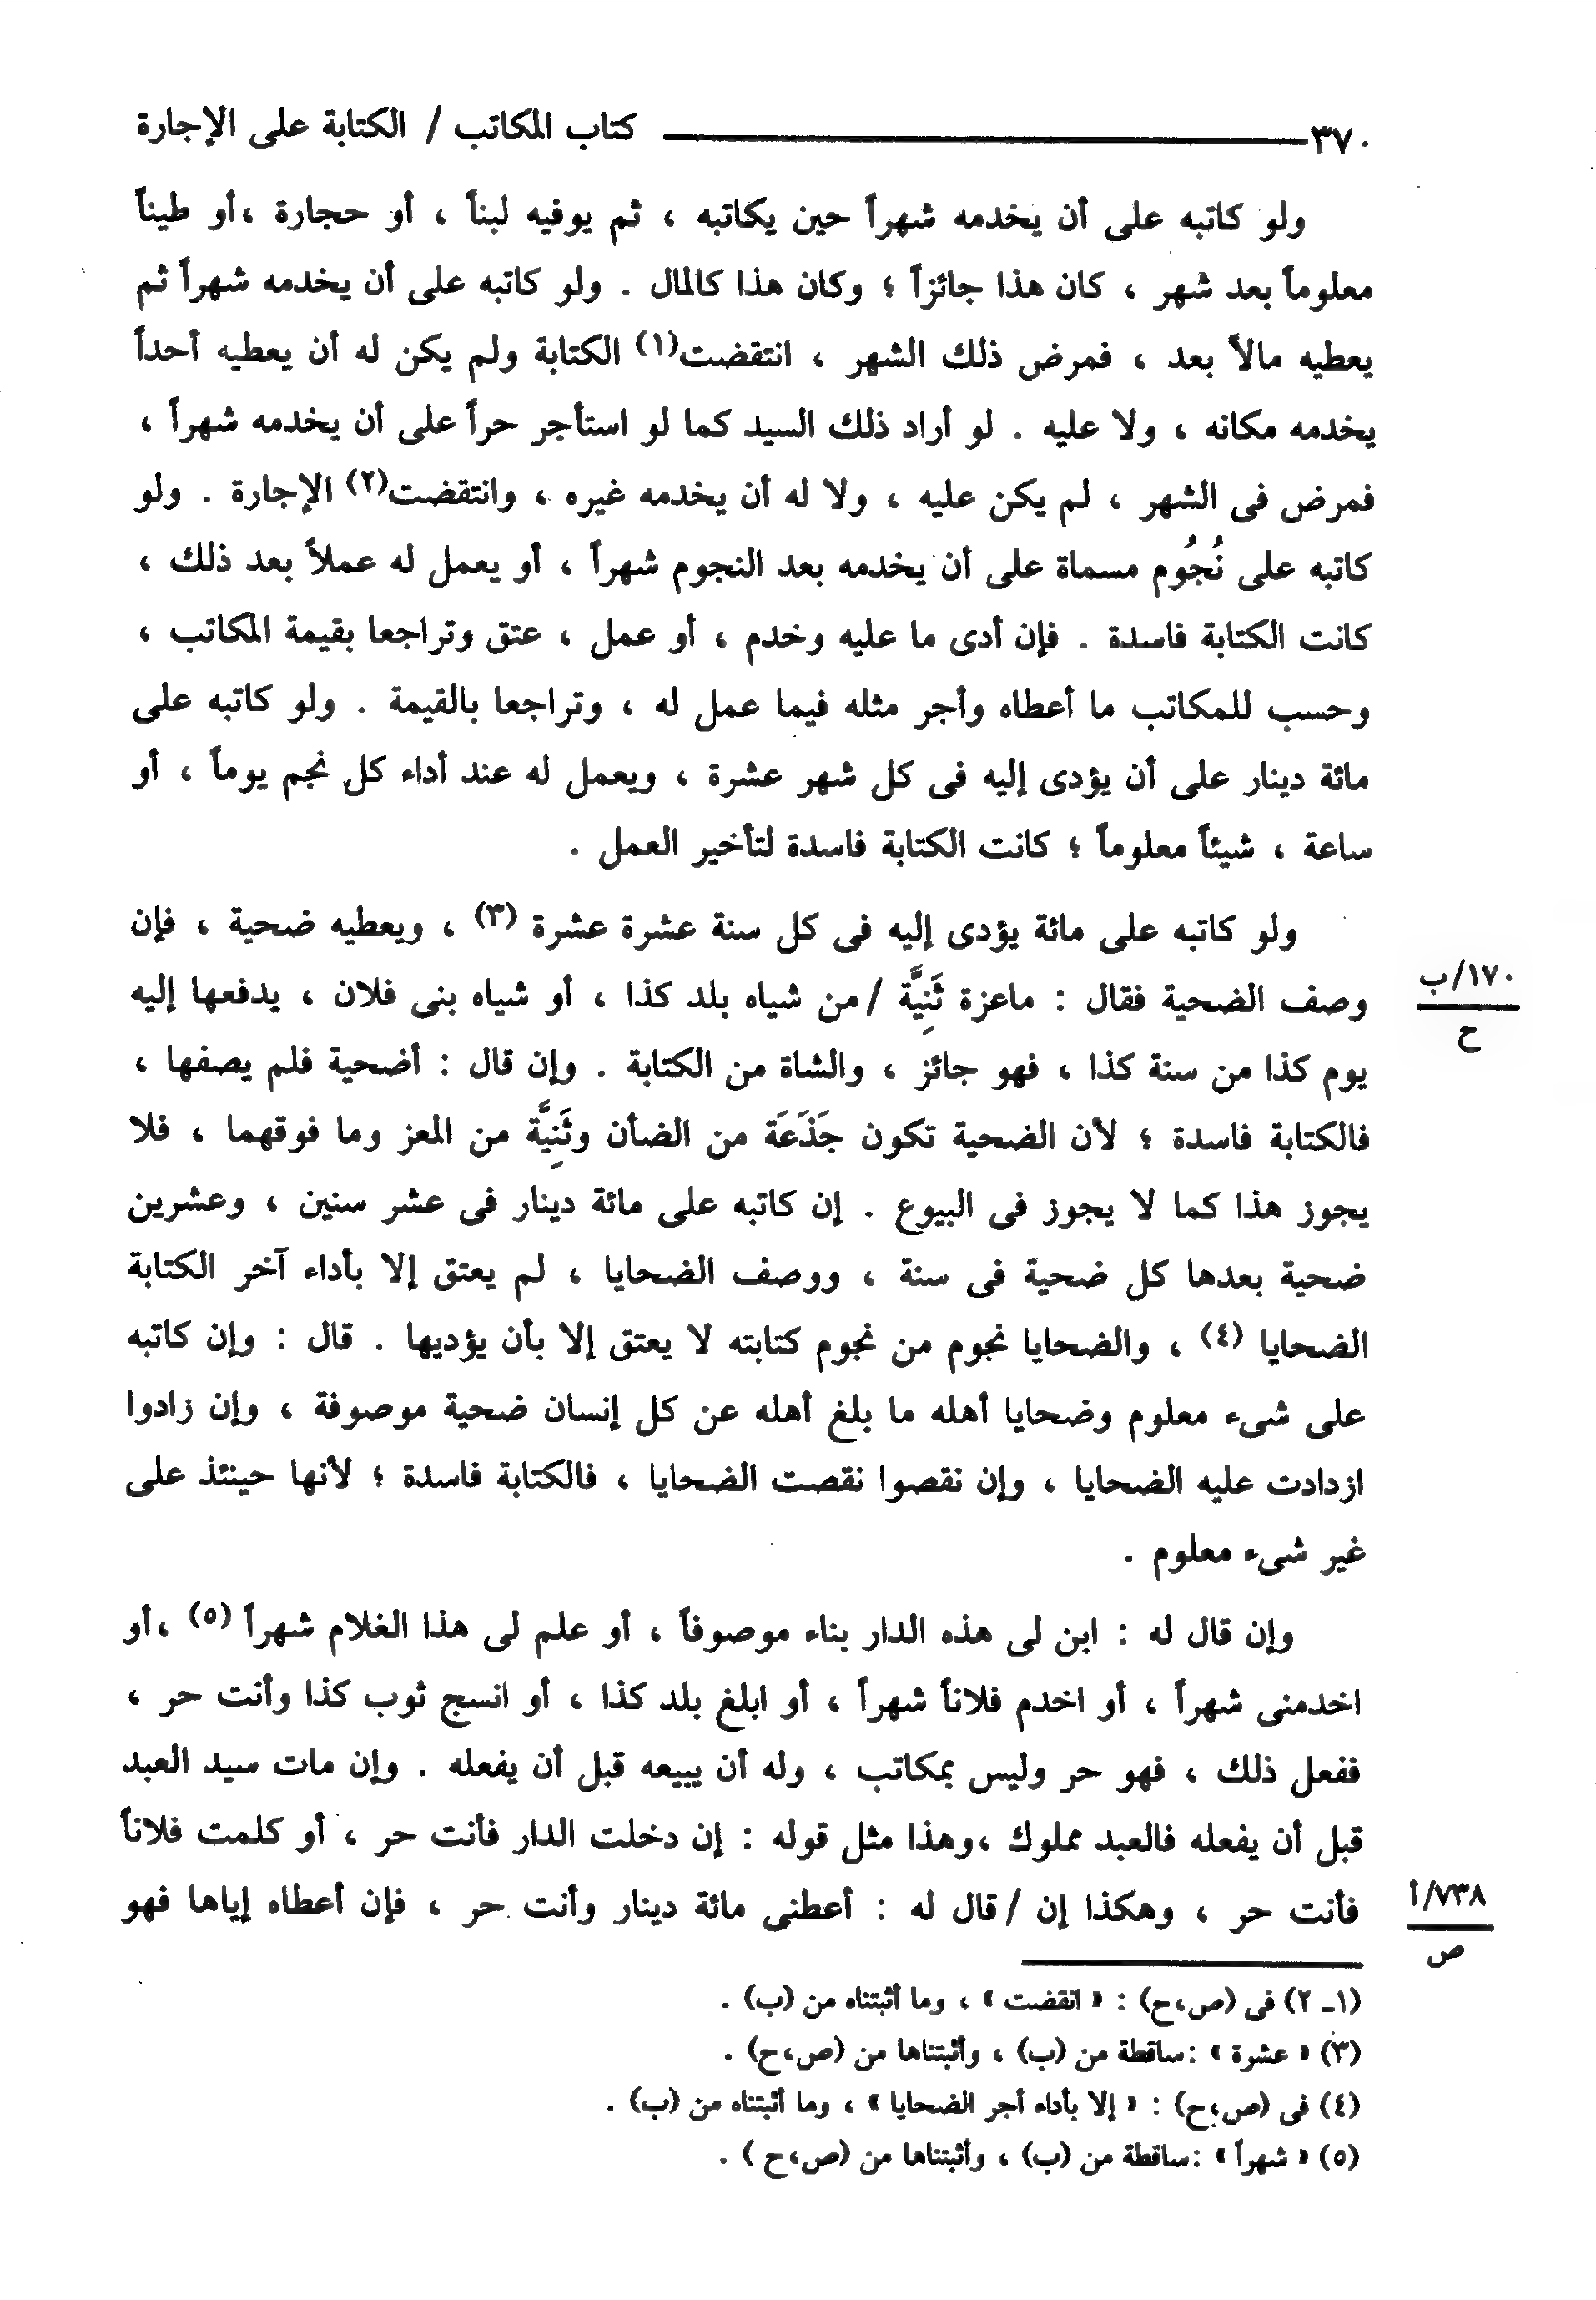 ٣٧٠ كتاب المكاتب / الكتابة على الإجارة
ولو كاتبه على أن يخدمه شهراً حين يكاتبه ، ثم يوفيه لبناً ، أو حجارة ،أو طيناً
معلوماً بعد شهر ، كان هذا جائزاً ؛ وكان هذا كالمال . ولو كاتبه على أن يخدمه شهراً ثم
يعطيه مالاً بعد ، فمرض ذلك الشهر ، انتقضت(١) الكتابة ولم يكن له أن يعطيه أحداً
يخدمه مكانه ، ولا عليه . لو أراد ذلك السيد كما لو استأجر حراً على أن يخدمه شهراً ،
فمرض فى الشهر ، لم يكن عليه ، ولا له أن يخدمه غيره ، وانتقضت(٢) الإجارة . ولو
كاتبه على نُجُوم مسماة على أن يخدمه بعد النجوم شهراً ، أو يعمل له عملاً بعد ذلك ،
كانت الكتابة فاسدة . فإن أدى ما عليه وخدم ، أو عمل ، عتق وتراجعا بقيمة المكاتب ،
وحسب للمكاتب ما أعطاه وأجر مثله فيما عمل له ، وتراجعا بالقيمة . ولو كاتبه على
مائة دينار على أن يؤدى إليه فى كل شهر عشرة ، ويعمل له عند أداء كل نجم يوماً ، أو
ساعة ، شيئاً معلوماً ؛ كانت الكتابة فاسدة لتأخير العمل .
ولو كاتبه على مائة يؤدى إليه فى كل سنة عشرة عشرة (٣) ، ويعطيه ضحية ، فإن
وصف الضحية فقال : ماعزة ثَنِيَّة /من شياه بلد كذا ، أو شياه بنى فلان ، يدفعها إليه
١٧٠/ب
ح
يوم كذا من سنة كذا ، فهو جائز ، والشاة من الكتابة . وإن قال : أضحية فلم يصفها ،
فالكتابة فاسدة ؛ لأن الضحية تكون جَذَعَة من الضأن وثَنِيَّة من المعز وما فوقهما ، فلا
يجوز هذا كما لا يجوز فى البيوع . إن كاتبه على مائة دينار فى عشر سنين ، وعشرين
ضحية بعدها كل ضحية فى سنة ، ووصف الضحايا ، لم يعتق إلا بأداء آخر الكتابة
الضحايا (٤) ، والضحايا نجوم من نجوم كتابته لا يعتق إلا بأن يؤديها . قال : وإن كاتبه
على شىء معلوم وضحايا أهله ما بلغ أهله عن كل إنسان ضحية موصوفة ، وإن زادوا
ازدادت عليه الضحايا ، وإن نقصوا نقصت الضحايا ، فالكتابة فاسدة ؛ لأنها حينئذ على
غير شىء معلوم .
وإن قال له : ابن لى هذه الدار بناء موصوفاً ، أو علم لى هذا الغلام شهراً (٥) ،أو
اخدمنى شهراً ، أو اخدم فلاناً شهراً ، أو ابلغ بلد كذا ، أو انسج ثوب كذا وأنت حر ،
ففعل ذلك ، فهو حر وليس بمكاتب ، وله أن يبيعه قبل أن يفعله . وإن مات سيد العبد
قبل أن يفعله فالعبد مملوك ،وهذا مثل قوله : إن دخلت الدار فأنت حر ، أو كلمت فلاناً
فأنت حر ، وهكذا إن /قال له : أعطنى مائة دينار وأنت حر ، فإن أعطاه إياها فهو
٧٣٨/أ
ص
(١ـ ٢) فى (ص،ح) : « انقضت » ، وما أثبتناه من (ب) .
(٣) « عشرة » :ساقطة من (ب) ، وأثبتناها من (ص،ح) .
(٤) فى (ص،ح) : « إلا بأداء أجر الضحايا » ، وما أثبتناه من (ب) .
(٥) « شهراً » :ساقطة من (ب) ، وأثبتناها من (ص،ح ) .